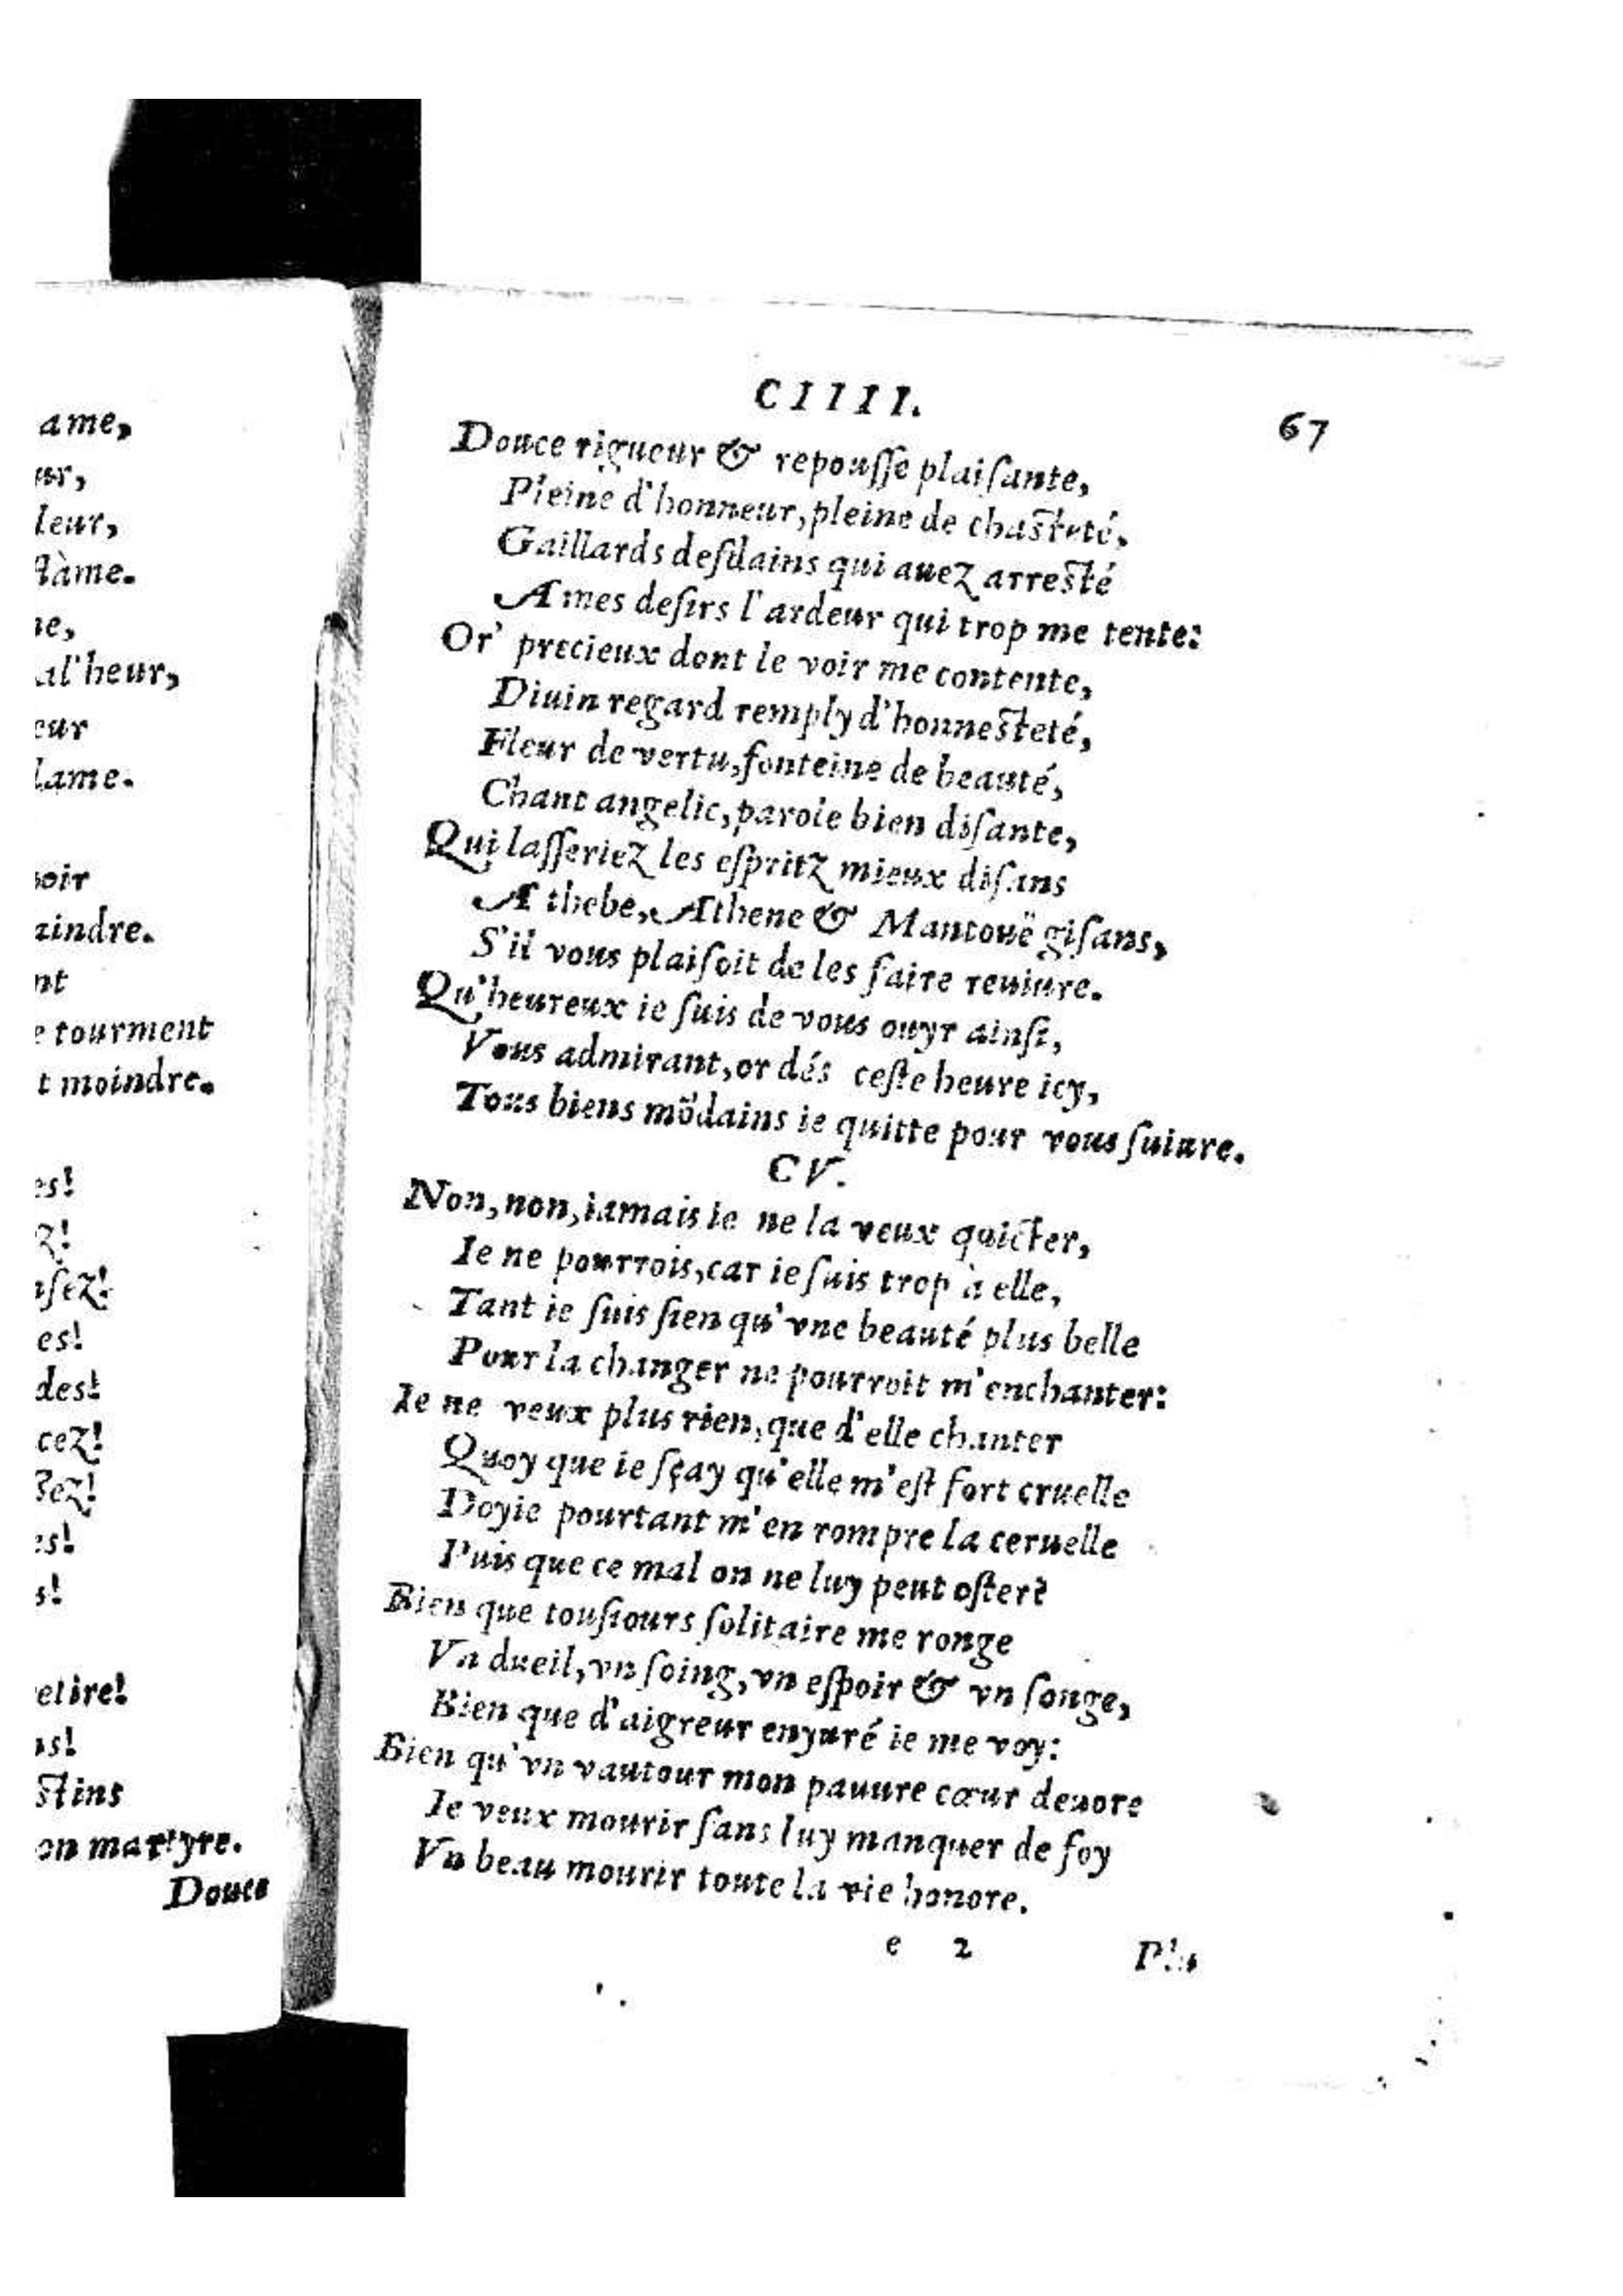 ame,
ur,
leur,
flàme.
ne,
al'heur,
eur
lame.
oir
aindre.
nt
e tourment
t moindre.
es!
z!
sez!
es!
des!
cez!
sez!
es!
s!
etire!
s!
stins
on martyre.
Douce
CIIII.
67
Douce rigueur & repouſſe plaiſante,
Pleine d'honneur, pleine de chaſteté,
Gaillards deſdains qui auez arreſté
A mes deſirs l'ardeur qui trop me tente:
Or' precieux dont le voir me contente,
Diuin regard remply d'honneſteté,
Fleur de vertu, fonteine de beauté,
Chant angelic, parole bien diſante,
Qui laſſeriez les eſpritz mieux diſans
A thebe, Athene & Mantouë giſans,
S'il vous plaiſoit de les faire reuiure.
Qu'heureux ie ſuis de vous ouyr ainſi,
Vous admirant, or dés ceſte heure icy,
Tous biens mõdains ie quitte pour vous ſuiure.
CV.
Non, non, iamais ie ne la veux quicter,
Ie ne pourrois, car ie ſuis trop à elle,
Tant ie ſuis ſien qu'vne beauté plus belle
Pour la changer ne pourroit m'enchanter:
Ie ne veux plus rien, que d'elle chanter
Quoy que ie ſçay qu'elle m'eſt fort cruelle
Doyie pourtant m'en rompre la ceruelle
Puis que ce mal on ne luy peut oſter?
Bien que touſiours ſolitaire me ronge
Vn dueil, vn ſoing, vn eſpoir & vn ſonge,
Bien que d'aigreur enyuré ie me voy:
Bien qu'vn vautour mon pauure cœur deuore
Ie veux mourir ſans luy manquer de foy
Vn beau mourir toute la vie honore.
e 2